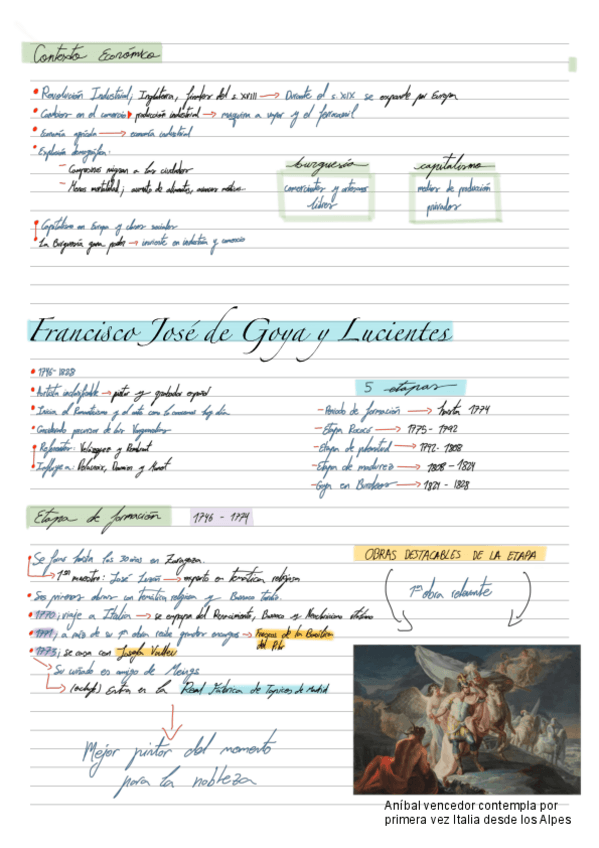 Contexto Económico
• Revolución Industrial; Inglaterra, finales del s. XVIII → Durante el s. XIX se expande por Europa
• Cambios en el comercio producción industrial → maquina a vapor y el ferrocarril
• Economía agrícola → economía industrial
• Explosión demográfica:
– Campesinos migran a las ciudades
– Menos mortalidad; aumento de alimentos, avances médicos
burguesía
comerciantes y artesanos
libres
capitalismo
medios de producción
privados
• Capitalismo en Europa y clases sociales
• La Burguesía gana poder → invierte en industria y comercio
Francisco José de Goya y Lucientes
• 1746-1828
• Artista inclasificable → pintor y grabador español
• Inicia el Romanticismo y el arte como lo conocemos hoy día
• Considerado precursor de las Vanguardias
• Referentes: Velázquez y Rembrant
• Influye a: Delacroix, Daumier y Manet
5 etapas
– Periodo de formación → hasta 1774
– Etapa Rococó → 1775-1792
– Etapa de plenitud → 1792-1808
– Etapa de madurez → 1808-1824
– Goya en Burdeos → 1824-1828
Etapa de formación 1746-1774
• Se forma hasta los 30 años en Zaragoza.
→ 1er maestro: José Luzán → experto en temática religiosa
• Sus primeras obras son temática religiosa y Barroco tardío.
• 1770; viaje a Italia → se empapa del Renacimiento, Barroco y Neoclasicismo italiano
• 1771; a raíz de su 1ª obra recibe grandes encargos → Frescos de la Basílica
del Pilar
• 1773; se casa con Josefa
→ Su cuñado es amigo de Mengs
→ Entra en la Real Fábrica de Tapices de Madrid
Mejor pintor del momento
para la nobleza
OBRAS DESTACABLES DE LA ETAPA
1ª obra relevante
Aníbal vencedor contempla por
primera vez Italia desde los Alpes